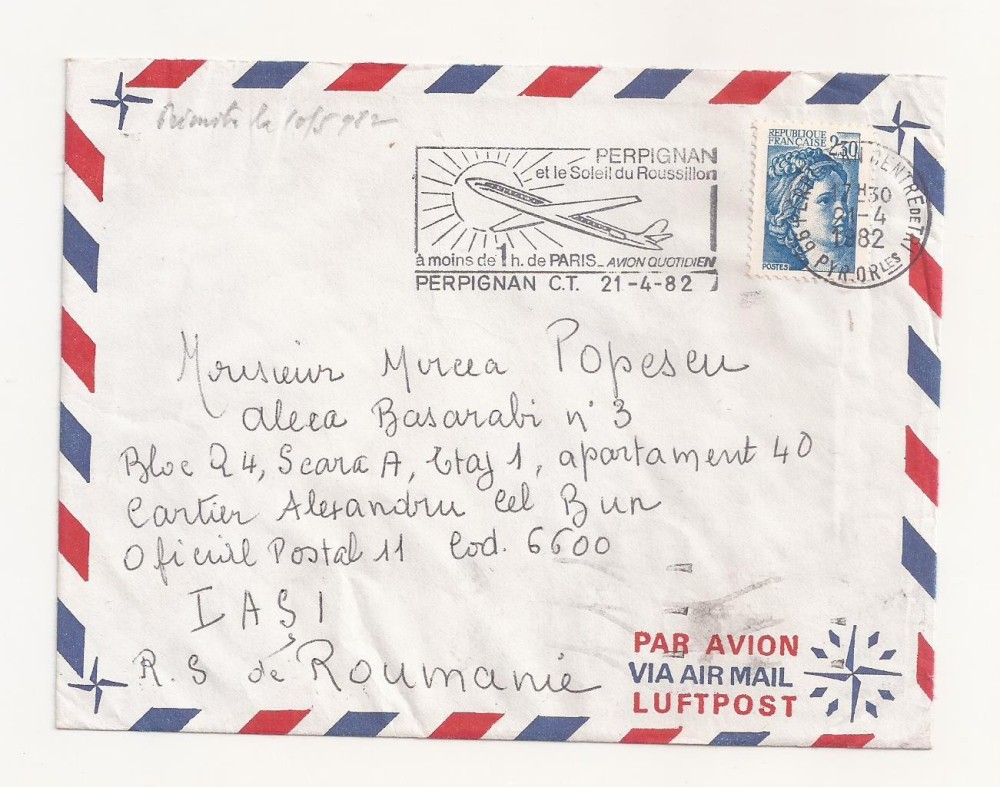 la 10/5 982
PERPIGNAN
et le Soleil du Roussillon
à moins de 1 h. de PARIS_AVION QUOTIDIEN
PERPIGNAN C.T. 21-4-82
REPUBLIQUE
FRANÇAISE 2,30
POSTES
CENTRE DE TRI
17H30
21-4
1982
66 PYR.ORLES
Monsieur Mircea Popescu
aleea Basarabi n° 3
Bloc Q4, Scara A, Etaj 1, apartament 40
Cartier Alexandru Cel Bun
Oficiul Postal 11 Cod. 6600
IAŞI
R.S de Roumanie
PAR AVION
VIA AIR MAIL
LUFTPOST